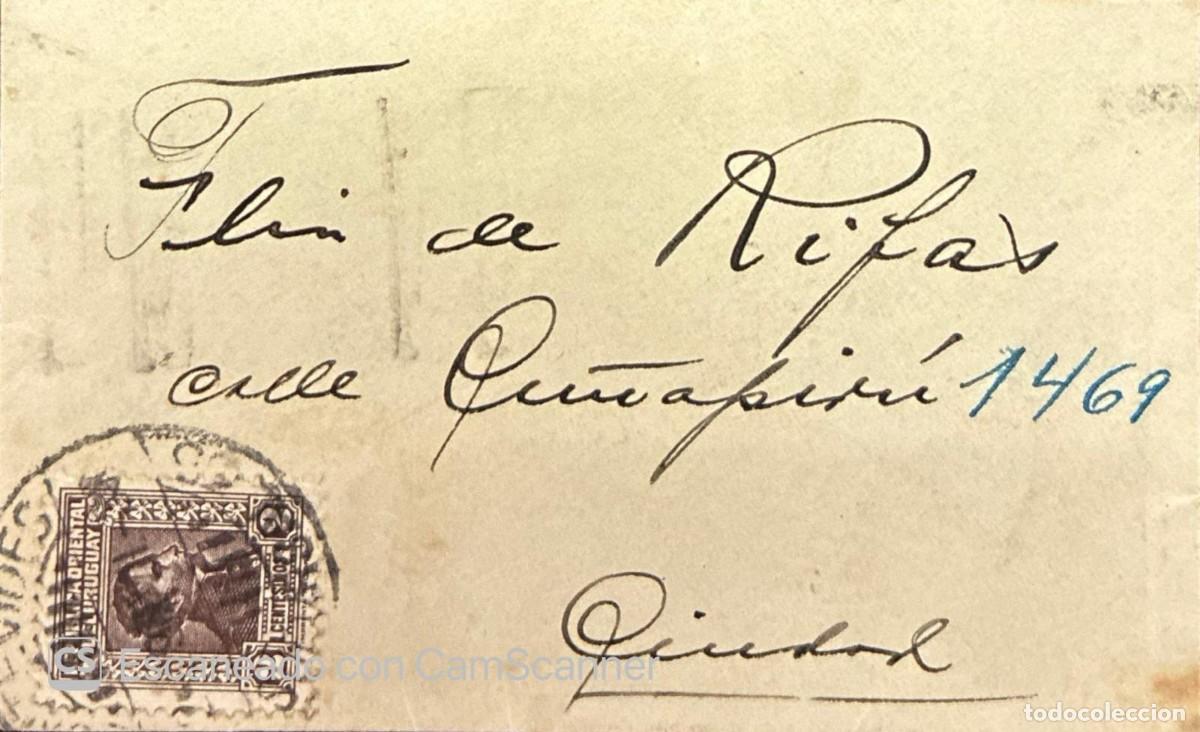 Flia de Rifas
calle Cuñapirú 1469
Ciudad
REPUBLICA ORIENTAL
DEL URUGUAY
2 CENTESIMOS 2
CS Escaneado con CamScanner
todocoleccion